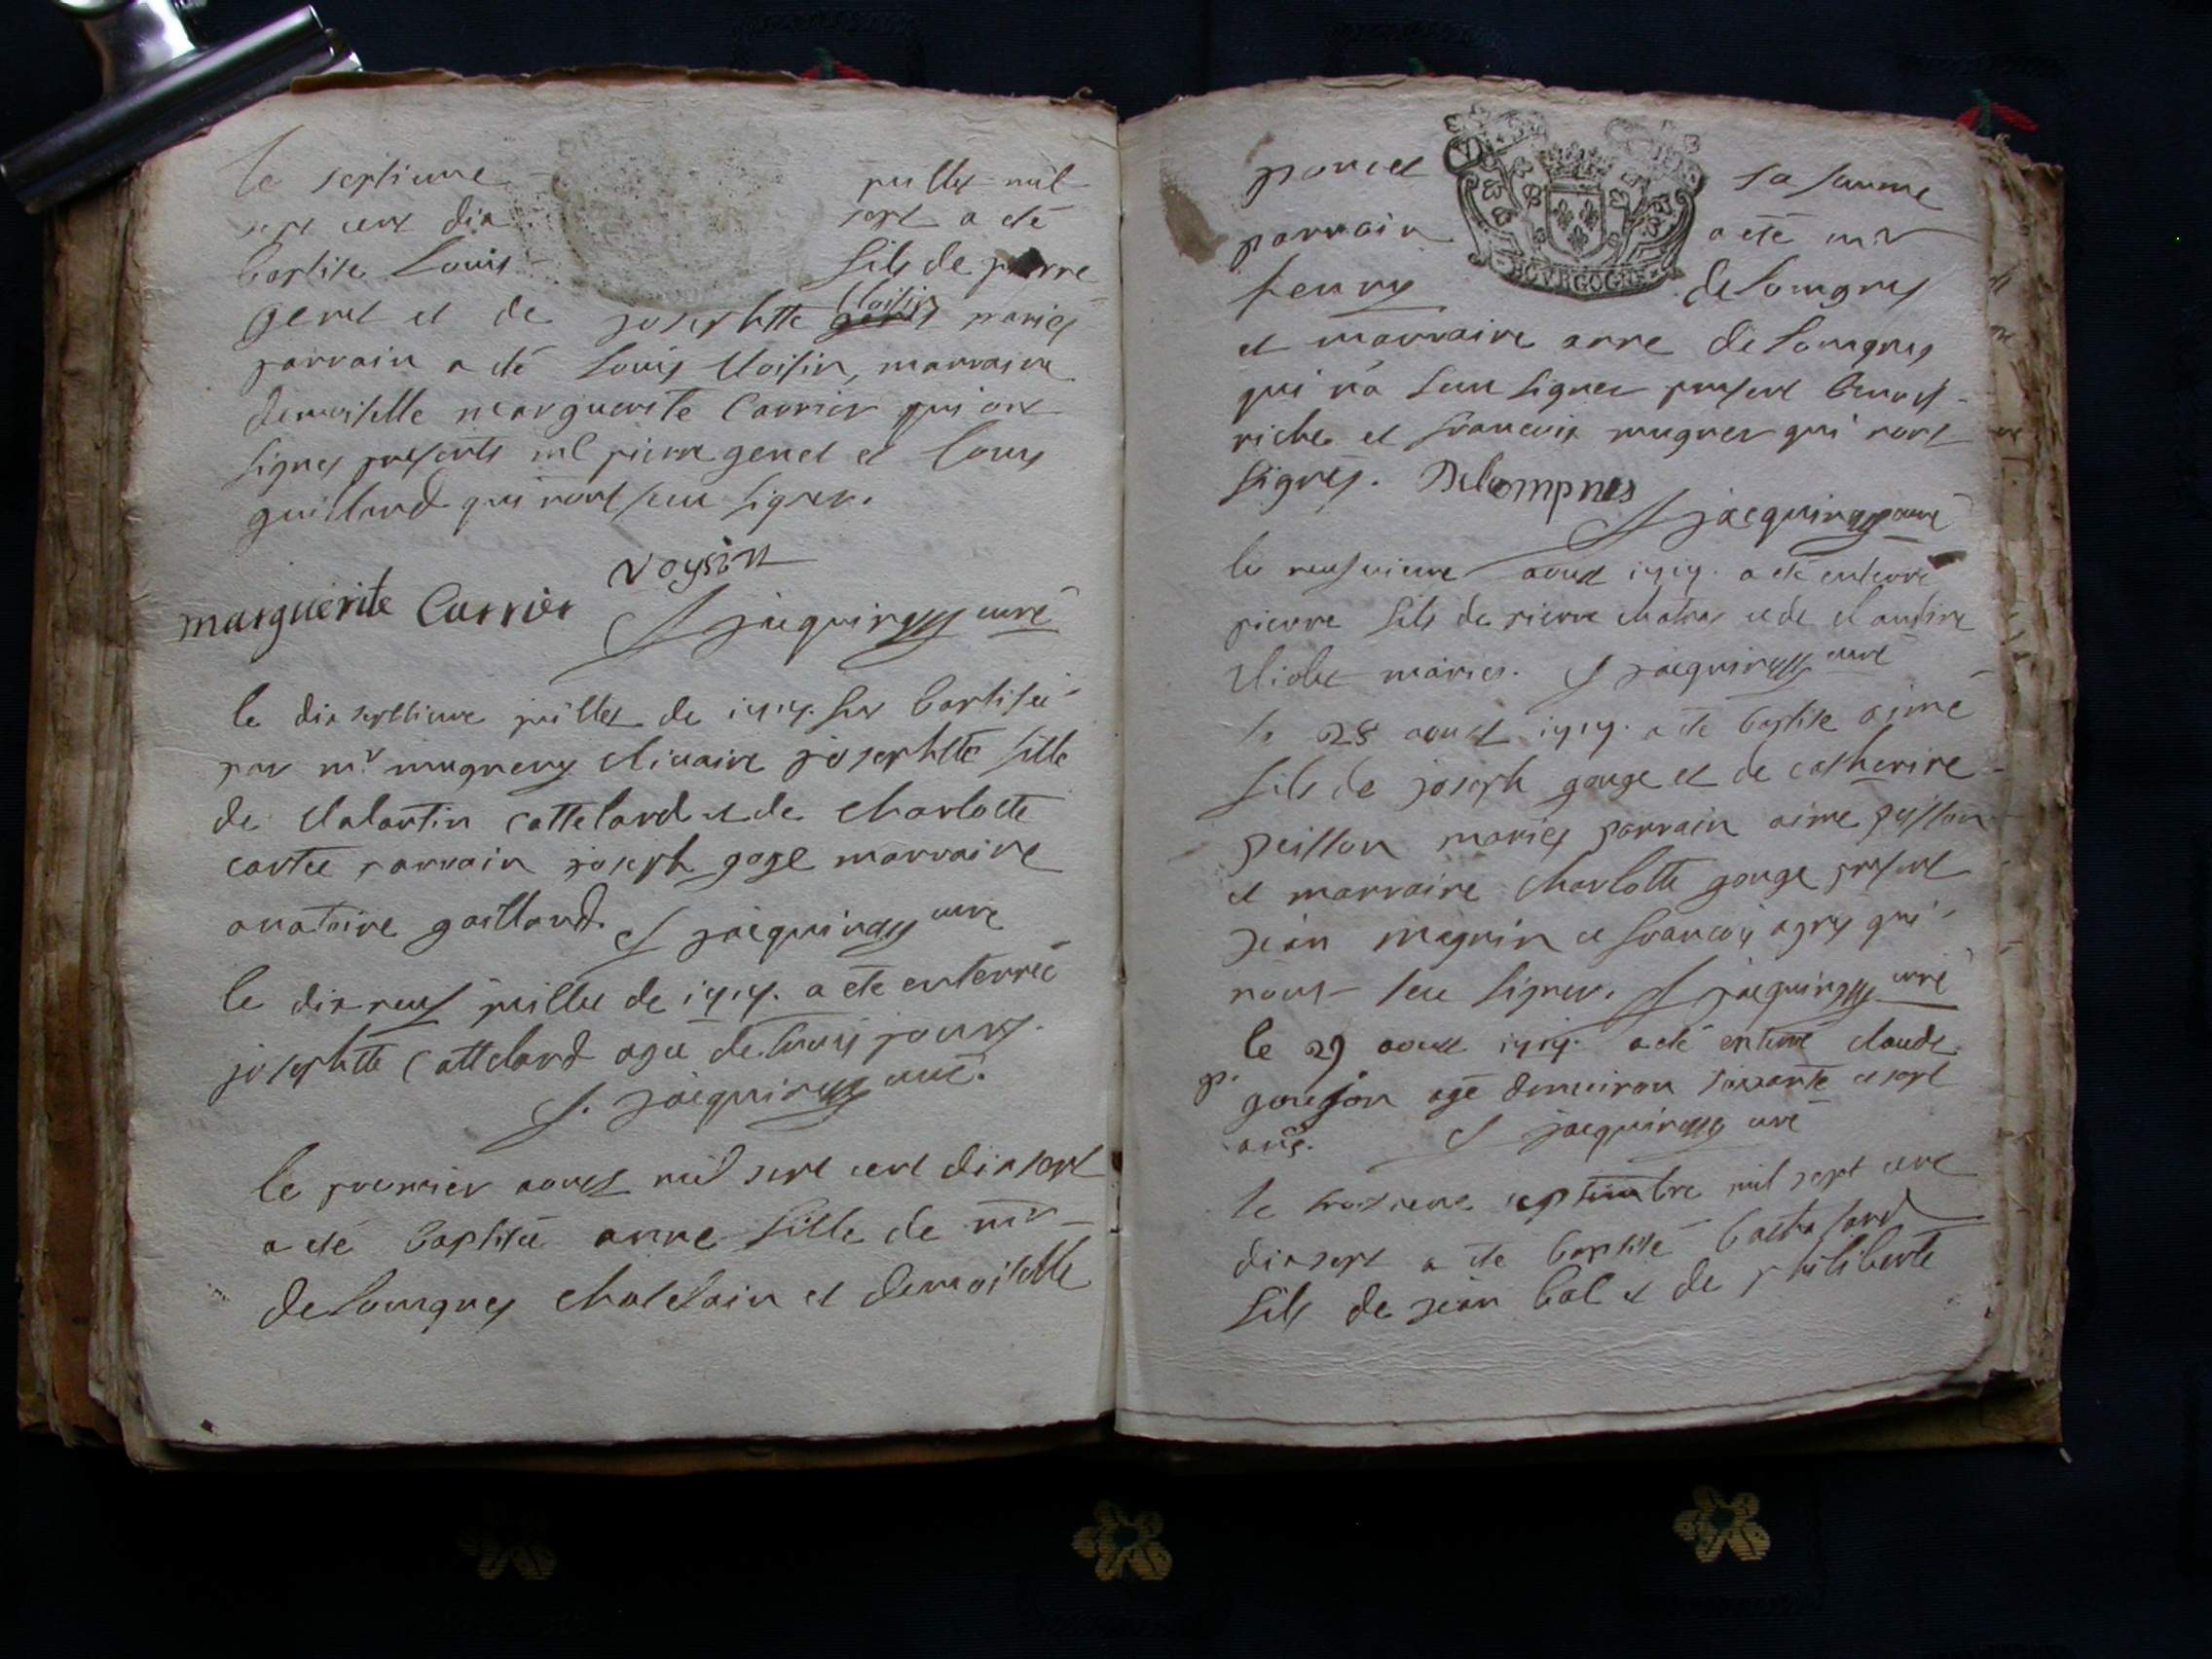 le septieme juillet mil
sept cent dix sept a eté
baptisé Louis fils de pierre
genet et de josephtte Voisin mariés
parrain a eté Louis Voisin, marraine
demoiselle marguerite Carrier qui ont
signes presents mc pierre genet et Louis
guillard qui nont sceu signer.
voysin
marguerite Carrier S jacquin curé
le dix septieme juillet de 1717. fut baptisée
par mr mugneny vicaire josephtte fille
de Valantin cattelard et de charlotte
parrain joseph goge marraine
gaillard. S jacquin cure
le dix neuf juillet de 1717. a eté enterrée
josephtte Cattelard agée de trois jours.
S. jacquin curé.
le premier aoust mil sept cent dix sept
a eté baptisée anne fille de mr
de Lompnes chatelain et demoiselle
poncet sa famme
parrain a eté mr
de Lompnes
et marraine anne de Lompnes
qui n'a sceu signer present benoist
riche et francois mugner qui nont
signés. Delompnes
S jacquin curé
le neufvieme aoust 1717. a eté enterré
pierre fils de pierre chatra et de claudine
Violet mariés. S jacquin curé
le 28 aoust 1717. a eté baptisé aimé
fils de joseph gouge et de catherine
peillon mariés parrain aime peillon
et marraine charlotte gouge present
jean megnin et francois agny qui
nont sceu signer. S jacquin curé
le 29 aoust 1717. a eté enterré claude
p. goujon agé denviron soixante et sept
ans. S jacquin curé
le troisieme septembre mil sept cent
dix sept a eté baptisé balthasard
fils de jean bal et de philiberte
BOVRGOGNE